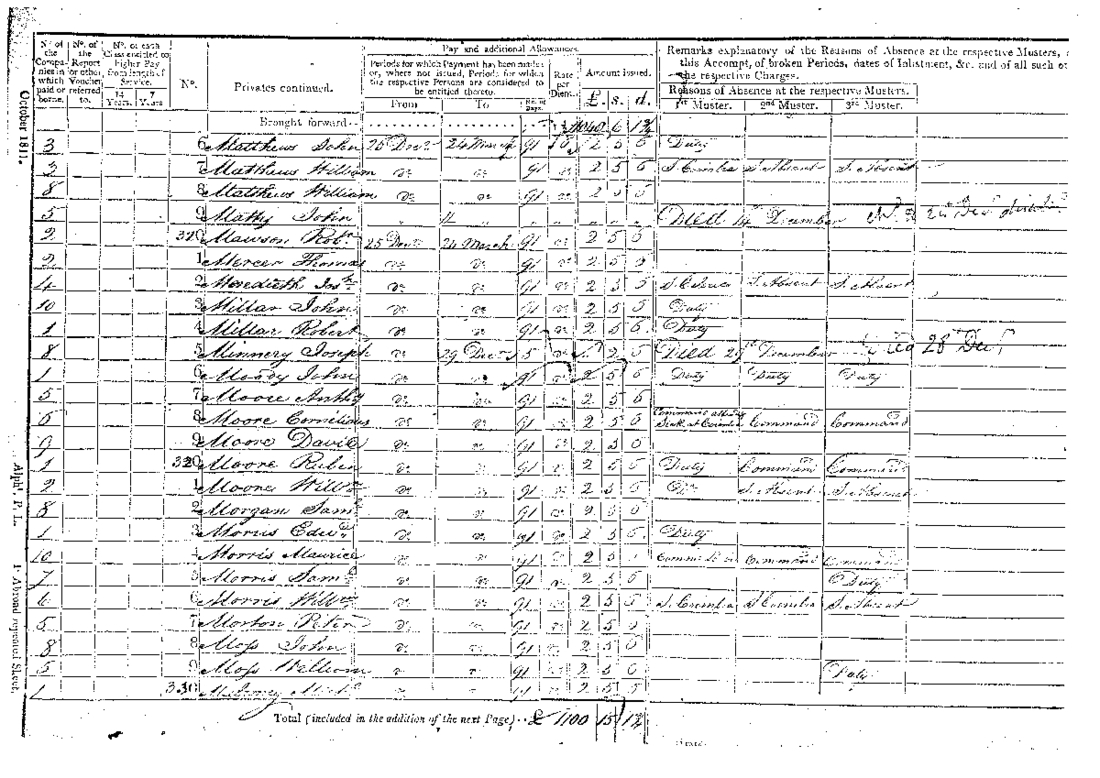 October 1811.
Alph'. P. L.
1 Abroad repeated Sheet.
Nº of the Companies in which paid or borne.
Nº. of the Report or other Voucher referred to.
Nº. of each Class entitled to higher Pay from length of Service.
14 Years.
7 Years
Nº.
Privates continued.
Pay and additional Allowances.
Periods for which Payment has been made or, where not issued, Periods for which the respective Persons are considered to be entitled thereto.
From
To
No. of Days.
Rate per Diem.
Amount issued.
£. s. d.
Remarks explanatory of the Reasons of Absence at the respective Musters,
this Accompt, of broken Periods, dates of Inlistment, &c. and of all such
the respective Charges.
Reasons of Absence at the respective Musters.
1st Muster. 2nd Muster. 3rd Muster.
Brought forward 1040 6 1¾
3 6 Matthews John 25 Decr 24 March 91 2 5 6 Duty
3 7 Matthews William do do 91 do 2 5 6 S. Coimbra S. Absent S. Absent
8 8 Matthews William do do 2 5 6
5 9 Mathy John " " " " " " " Died 14th December
2 310 Mawson Robt. 25 Decr 24 March 91 do 2 5 6
2 1 Mercer Thomas do do 91 do 2 5 6
4 2 Meredith Josh. do do 91 do 2 5 6 S. Absent S. Absent
10 3 Millar John do do 91 do 2 5 6 Duty
1 4 Millar Robert do do 91 do 2 5 6 Duty
8 5 Minnery Joseph do 29 Decr 5 do 2 6 Died 29th December Died 28 Decr
1 6 Moody John do do 91 do 2 5 6 Duty Duty Duty
5 7 Moore Anthy do do 91 do 2 5 6
6 8 Moore Cornilious do do 91 do 2 5 6 Command Command
9 9 Moore David do do 91 do 2 5 6
1 320 Moore Ruben do do 91 do 2 5 6 Duty Command Command
2 1 Moore Willm do do 91 do 2 5 6 S. Absent S. Absent
8 2 Morgan Saml do do 91 do 2 5 6
1 3 Morris Edwd. do do 91 do 2 5 6 Duty
10 4 Morris Maurice do do 91 2 5 Command Command
7 5 Morris Saml do do 91 do 2 5 6 Duty
6 6 Morris Willm do do 91 do 2 5 6 S. Coimbra S. Coimbra S. Absent
5 7 Morton Peter do do 91 do 2 5 6
8 8 Moss John do do 91 do 2 5 6
5 9 Moss William do do 91 do 2 5 6 Duty
1 330 91 2 5 6
Total (included in the addition of the next Page) £ 1100 15 1¾